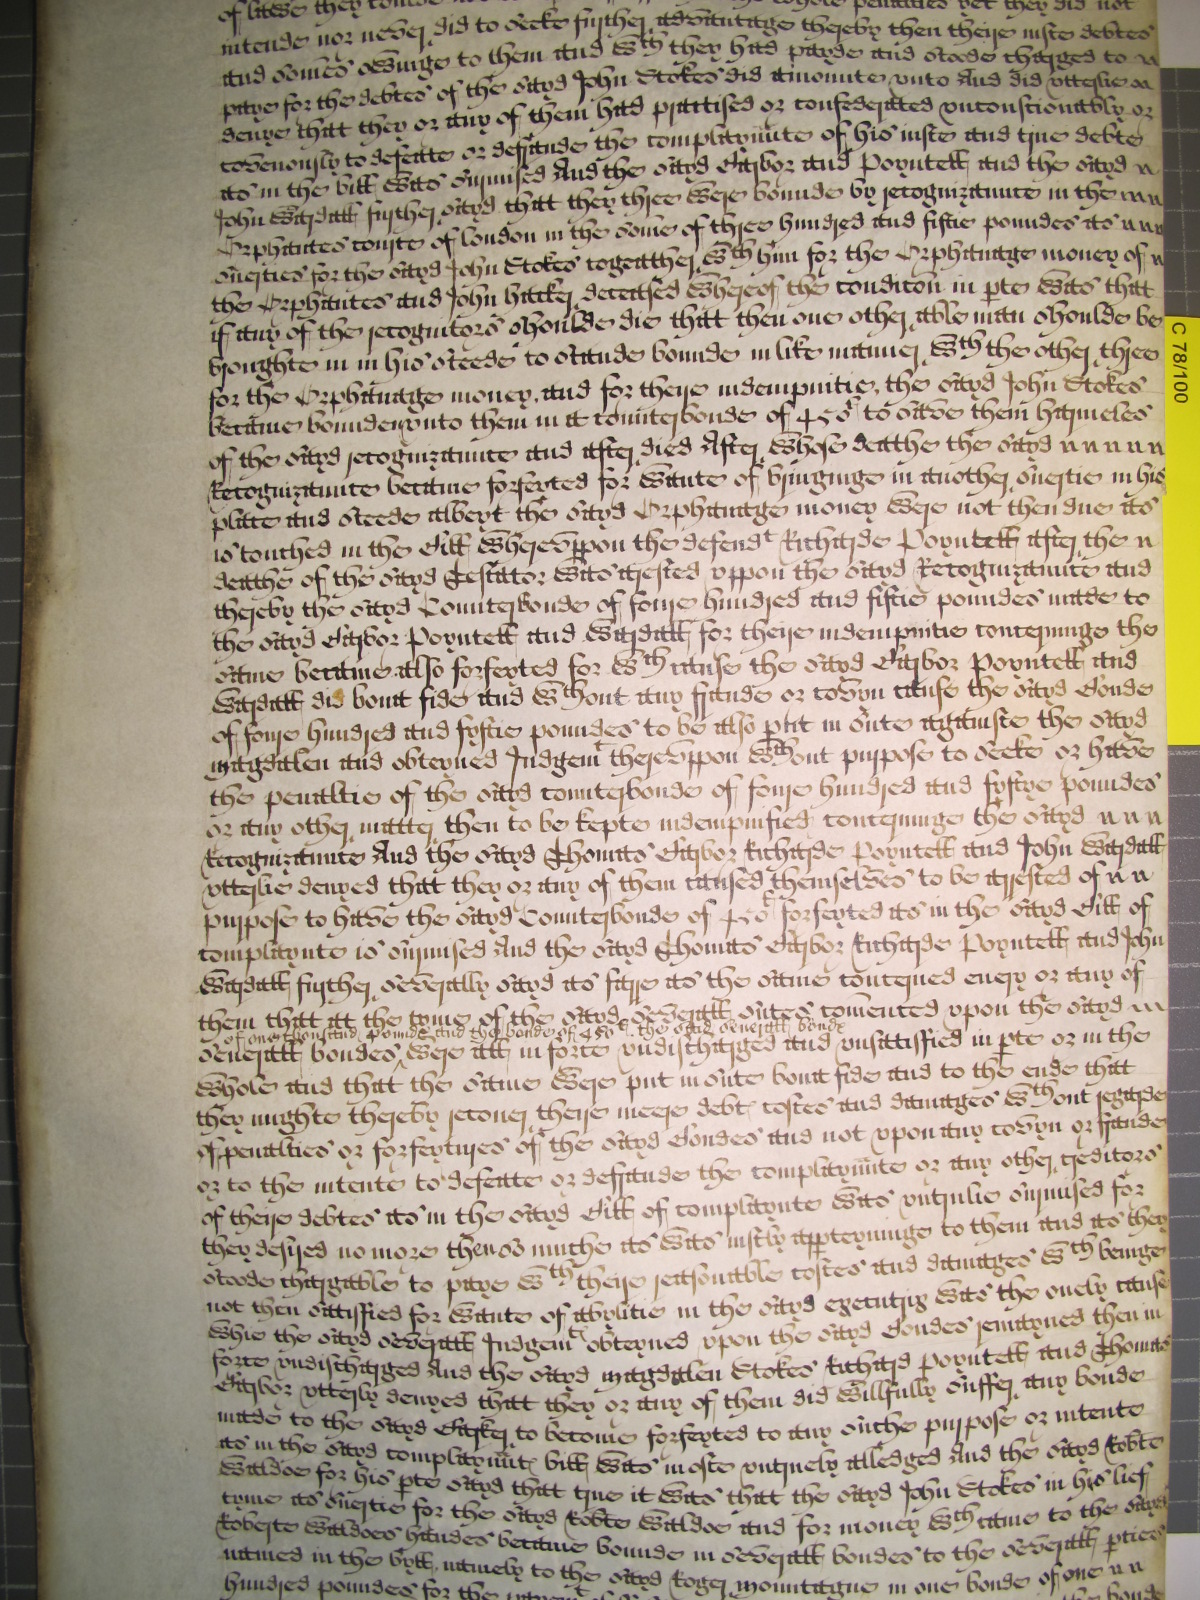 intende nor never did to seeke further advantage thereby then theire iuste debtes
and somes owinge to them and wth they had payde and stoode charged to
paye for the debtes of the sayd John Stokes did amounte unto And did utterlie
denye that they or any of them had practised or confederated unconscionably or
covenously to defeate or defraude the complaynante of his iuste and true debte
as in the bill was surmised And the sayd Carbor and Poyntell and the sayd
John Wardall further sayd that they three were bounde by recognizaunce in the
Orphantes courte of london in the some of three hundred and fiftie poundes as
suerties for the sayd John Stokes togeather wth him for the Orphanage money of
the Orphantes and John hacker deceased whereof the condicon in pte was that
if any of the recognitors shoulde die that then one other able man shoulde be
broughte in in his steede to stande bounde in like manner wth the other three
for the Orphanage money, and for theire indempnitie, the sayd John Stokes
became bounden unto them in a counterbonde of 450l to save them harmeles
of the sayd recognizaunce and after died After whose deathe the sayd
Recognizaunce became forfeyted for wante of bringinge in another suertie in his
place and steede albeyt the sayd Orphanage money were not then due as
is touched in the Bill whereuppon the defendt Richarde Poyntell after the
deathe of the sayd Testator was arested uppon the sayd Recognizaunce and
thereby the sayd Counterbonde of foure hundred and fiftie poundes made to
the sayd Carbor Poyntell and Wardall for theire indempnitie concerninge the
same became also forfeyted for wth cause the sayd Carbor Poyntell and
Wardall did bona fide and wthout any fraude or covyn cause the sayd Bonde
of foure hundred and fyftie poundes to be also put in sute againste the sayd
Magdalen and obteyned Judgemt thereuppon wthout purpose to seeke or have
the penaltie of the sayd counterbonde of foure hundred and fyftye poundes
or any other matter then to be kepte indempnified concerninge the sayd
Recognizaunce And the sayd Thomas Carbor Richarde Poyntell and John Wardall
utterlie denyed that they or any of them caused themselves to be arrested of
purpose to have the sayd Counterbonde of 450l forfeyted as in the sayd Bill of
complaynte is surmised And the sayd Thomas Carbor Richarde Poyntell and John
Wardall further severally sayd as farre as the same concerned every or any of
them that at the tyme of the sayd severall sutes comenced upon the sayd
of one thousand pounde and the bonde of 450l the said severall bonde
severall bondes, were all in force undischarged and unsatisfied in pte or in the
whole and that the same were put in sute bona fide and to the ende that
they mighte thereby recover theire meere debt costes and damages wthout regarde
of penalties or forfeytures of the sayd Bondes and not upon any covyn or fraude
or to the intente to defeate or defraude the complaynante or any other creditors
of theire debtes as in the sayd Bill of complaynte was untrulie surmised for
they desyred no more then so muche as was iustly apperteyninge to them and as they
stoode chargable to paye wth theire reasonable costes and damages wth beinge
not then satisfied for wante of abylitie in the sayd executrix was the onely cause
whie the sayd severall Judgemt obteyned upon the sayd Bondes remayned then in
force undischarged And the sayd Magdalen Stokes Richard Poyntell and Thomas
Carbor utterly denyed that they or any of them did willfully suffer any bonde
made to the sayd Barker to become forfeyted to any suche purpose or intente
as in the sayd complaynante bill was moste untruely alledged And the sayd Robte
Waldoe for his pte sayd that true it was that the sayd John Stokes in his lief
tyme as suertie for the sayd Robte Waldoe and for money wth came to the sayd
Roberte Waldoes handes became bounde in severall bondes to the severall pties
named in the byll, namely to the sayd Roger Mountague in one bonde of one
hundred poundes for the
C 78/100